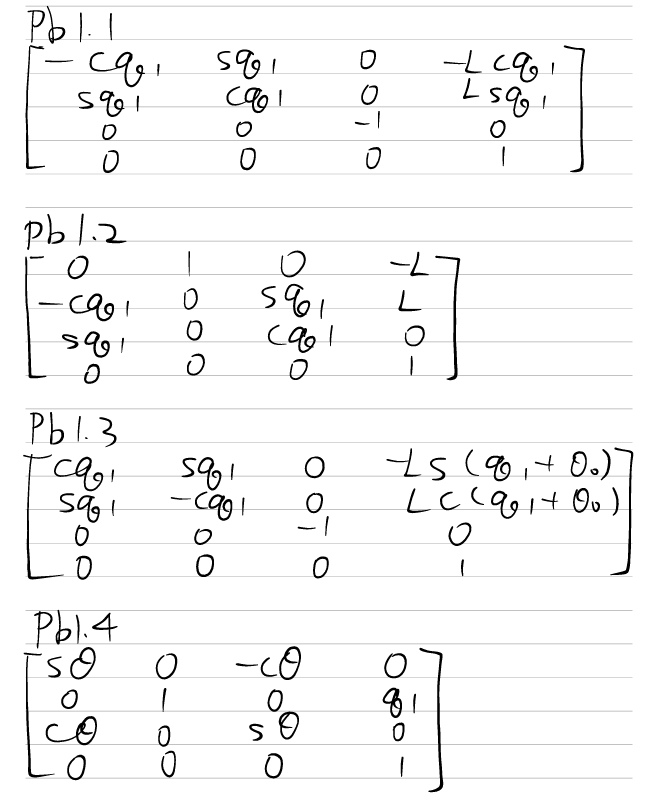 Pb1.1
-cq1 sq1 0 -Lcq1
sq1 cq1 0 Lsq1
0 0 -1 0
0 0 0 1
Pb1.2
0 1 0 -L
-cq1 0 sq1 L
sq1 0 cq1 0
0 0 0 1
Pb1.3
cq1 sq1 0 -Ls(q1+θ0)
sq1 -cq1 0 Lc(q1+θ0)
0 0 -1 0
0 0 0 1
Pb1.4
sθ 0 -cθ 0
0 1 0 q1
cθ 0 sθ 0
0 0 0 1